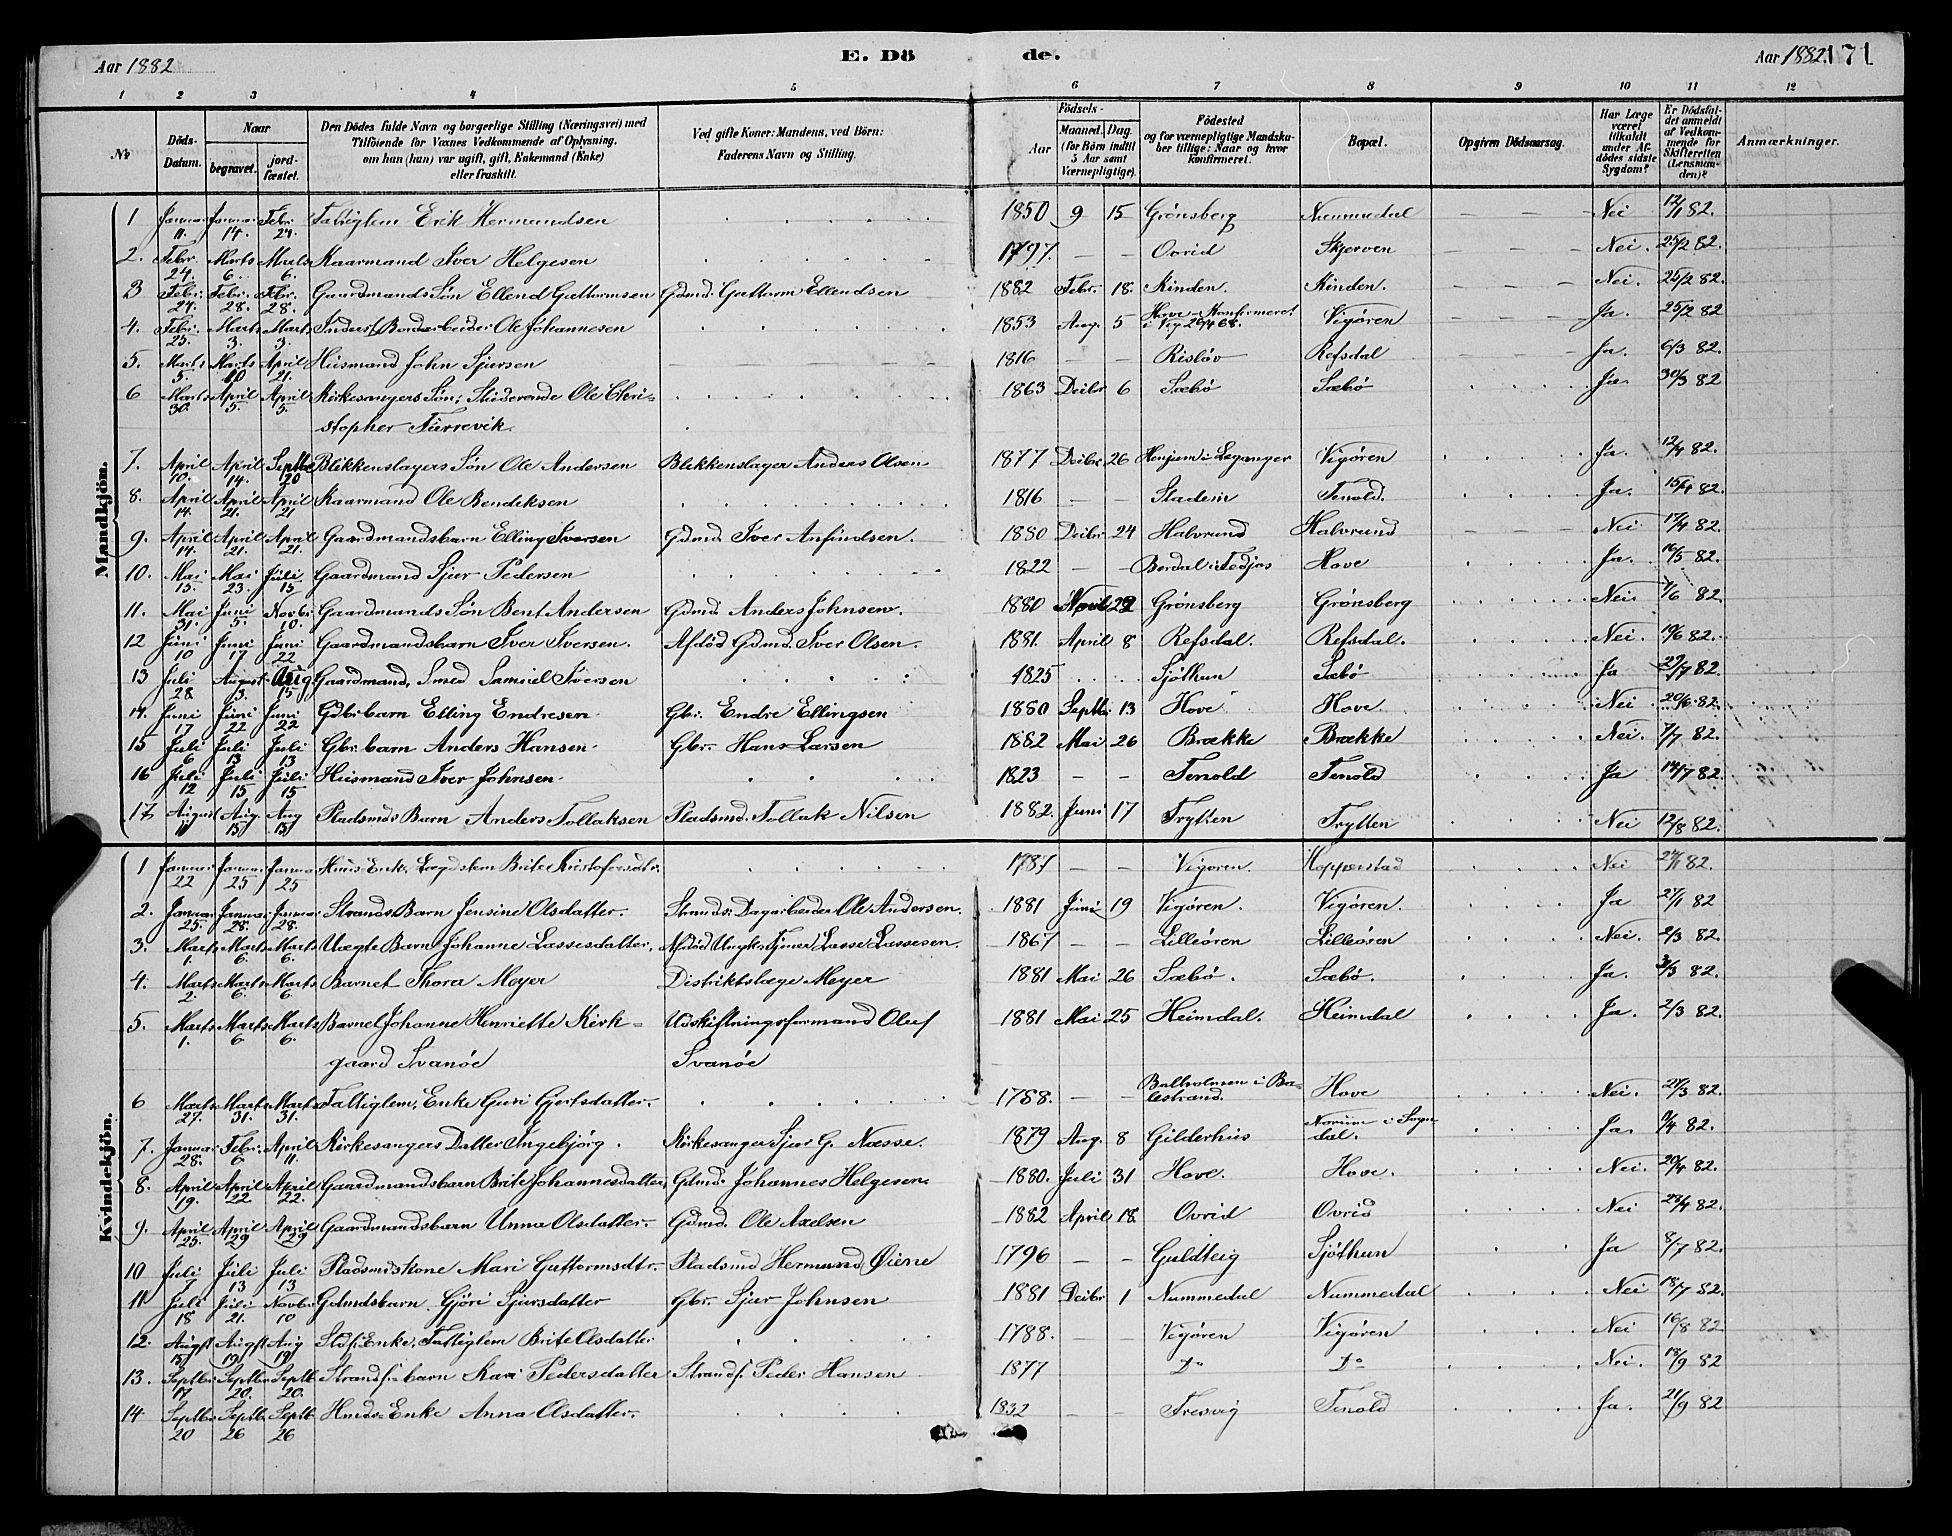 Aar 1882
E. Dö
de.
Aar 1882
171
1 2 3 4 5 6 7 8 9 10 11 12
№
Döds-Datum.
Naar
begravet.
jord-fæstet.
Den Dödes fulde Navn og borgerlige Stilling (Næringsvei) med
Tilföiende for Voxnes Vedkommende af Oplysning,
om han (hun) var ugift, gift, Enkemand (Enke)
eller fraskilt.
Ved gifte Koner: Mandens, ved Börn:
Faderens Navn og Stilling.
Födsels-
Aar
Maaned. Dag.
(for Börn indtil
5 Aar samt
Værnepligtige).
Födested
og for værnepligtige Mandska-
ber tillige: Naar og hvor
konfirmeret.
Bopæl.
Opgiven Dödsaarsag.
Har Læge
været
tilkaldt
under Af-
dödes sidste
Sygdom?
Er Dödsfal-
det anmeldt
af Vedkom-
mende for
Skifteretten
(Lensman-
den)?
Anmærkninger.
Mandkjön.
1 Januar 11. Januar 14. Febr. 24. Fattiglem Erik Hermundsen 1850 9 15 Grønsberg Nummedal Nei 12/1 82.
2. Febr. 24. Marts 6. Marts 6. Kaarmand Iver Helgesen 1797. Ovrid Skjerven Nei. 25/2 82.
3 Febr. 24. Febr. 28. Febr. 28. Gaardmands Søn Ellend Guttormsen Gdmd. Guttorm Ellendsen 1882 Febr. 18. Kinden. Kinden. Nei. 25/2 82.
4. Febr. 25. Marts 3. Marts 3. Ole Johannesen 1853 Aug. 5 Hove - Konfirmeret i Vig 26/4 68. Vigøren Ja. 25/2 82
5. Marts 5. Marts 10 April 21. Husmand John Sjursen 1816 Risløv Refsdal Ja. 6/3 82.
6 Marts 30. April 5. April 5. Kirkesangers Søn, Studerende Ole Chri-
stopher Turrevik. 1863 Decbr 6 Sæbø Sæbø Ja. 30/3 82
7. April 10. April 14. Septbr 20 Blikkenslagers Søn Ole Andersen Blikkenslager Anders Olsen 1877 Decbr. 26 Henjum i Leganger Vigøren Ja. 12/4 82.
8. April 14. April 21. April 21 Kaarmand Ole Bendiksen 1816 Stadein Tenold. Ja. 15/4 82.
9. April 14. April 21. April 21. Gaardmandsbarn Elling Iversen Gdmd. Iver Anfindsen. 1880 Decbr. 24 Halvrund Halvrund Nei 17/4 82.
10. Mai 15. Mai 23. Juli 15 Gaardmand Sjur Pedersen 1822 Bordal i Tedjos Hove Ja. 16/5 82.
11. Mai 31. Juni 5. Novbr. 10. Gaardmands Søn Bent Andersen Gdmd. Anders Johnsen. 1880 April 22 Grønsberg Grønsberg Nei. 7/6 82
12 Juni 10 Juni 17 Juni 22 Gaardmandsbarn Iver Iversen. Afdød Gdmd. Iver Olsen. 1881. April 8 Refsdal. Refsdal. Nei. 10/6 82.
13 Juli 28. August 3. Aug. 15 Gaardmand, Smed Samuel Iversen 1825 Sjøthun Sæbø Ja 29/7 82.
14. Juni 17 Juni 22 Juni 22 Gdbr. barn Elling Endresen. Gbr. Endre Ellingsen 1880 Septbr 13 Hove Hove Nei 20/6. 82
15 Juli 6 Juli 13 Juli 13 Gbr. barn Anders Hansen. Gbr. Hans Larsen 1882 Mai 26 Brække Brække Nei. 7/7 82.
16 Juli 12 Juli 15 Juli 15 Husmand Iver Johnsen. 1823 Tenold Tenold Ja 14/7 82
17 August 11 Aug. 15 Aug 15 Pladsmds Barn Anders Tollaksen Pladsmd. Tollak Nilsen 1882. Juni 17 Trytten Trytten Nei 12/8 82.
Kvindekjön.
1 Januar 22 Januar 25 Januar 25 Huus Enke, Lægdslem Brite Kristofersdtr. 1787 Vigøren. Hopperstad Nei 24/1 82.
2. Januar 25. Januar 28. Januar 28. Strands. Barn Jensine Olsdatter. Strands. Dagarbeider Ole Andersen. 1881 Juni 19 Vigøren. Vigøren. Ja 27/1 82
3. Marts 1. Marts 6. Marts 6. Uægte Barn Johanne Lassesdatter. Afdød Ungk. Tjener Lasse Lassesen. 1867 Lilleøren Lilleøren Nei. 2/3 82.
4. Marts 2. Marts 6. Marts 6. Barnet Thora Meyer Distriktslæge Meyer 1881 Mai 26 Sæbø. Sæbø. Ja. 3/3 82.
5. Marts 1. Marts 6. Marts 6. Barnet Johanne Henriette Kirk- Udskiftningsformand Oluf 1881 Mai 25 Heimdal. Heimdal Ja. 2/3 82.
gaard Svanøe Svanøe
6 Marts 27. Marts 31. Marts 31. Fattiglem, Enke Guri Gjertsdatter. 1788. Balholmen i Ba-
lestrand. Hove Nei. 27/3 82.
7. Januar 28. Febr. 6 April 11. Kirkesangers Datter Ingebjørg. Kirkesanger Sjur G. Næsse. 1879 Aug. 8 Gilderhus Norum i Sogn-
dal. Ja. /4 82.
8. April 19. April 22 April 22. Gaardmandsbarn Brite Johannesdatter. Gdmd. Johannes Helgesen. 1880. Juli 31 Hove. Hove. Nei. 20/4 82.
9. April 25. April 29 April 29 Gaardmandsbarn Unna Olsdatter. Gdmd. Ole Axelsen 1882 April 18. Ovrid Ovrid Nei 28/4 82.
10 Juli 7 Juli 13 Juli 13 Pladsmdskone Mari Guttormsdtr. Pladsmd Hermund Øiene 1796 Guldteig Sjøthun Ja 8/7 82.
11 Juli 18 Juli 21. Novbr 10 Gdmdsbarn Gjøri Sjursdatter Gbr. Sjur Johnsen 1881 Decbr 1 Nummedal Nummedal Nei 18/7 82.
12. Augst 15 Augst 19 Aug 19 Stdf. Enke, Fattiglem Brite Olsdatter 1788. Vigøren Vigøren Nei 16/8 82
13. Septbr 17 Septbr. 20. Septb. 20. Strandf. barn Kari Pedersdatter Strandf. Peder Hansen 1877 Do Do Nei. 18/9 82
14 Septbr. 20 Septb. 26 Septb 26 Husds Enke Anna Olsdatter. 1832 Fresvig Tenold Ja. 21/9 82